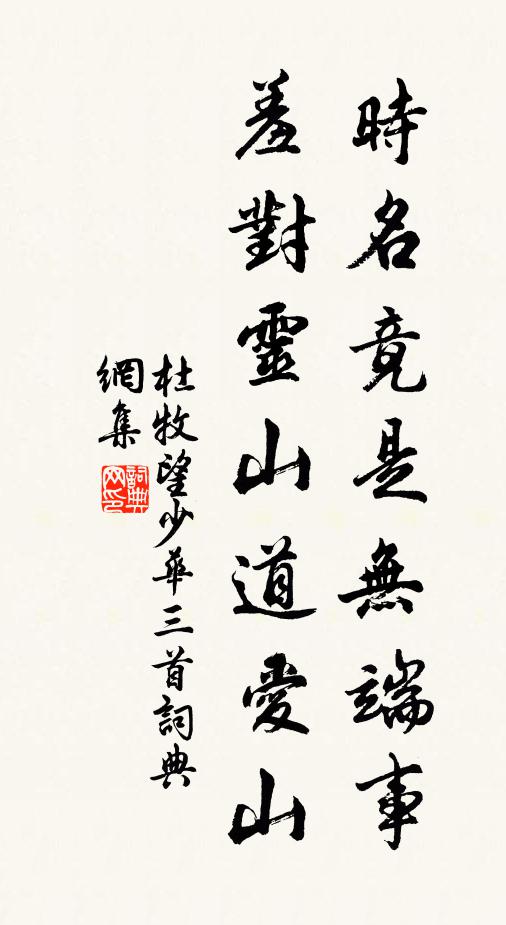 時名竟是無端事
羞對靈山道愛山
杜牧望少華三首詞典
網集
詞典
网印